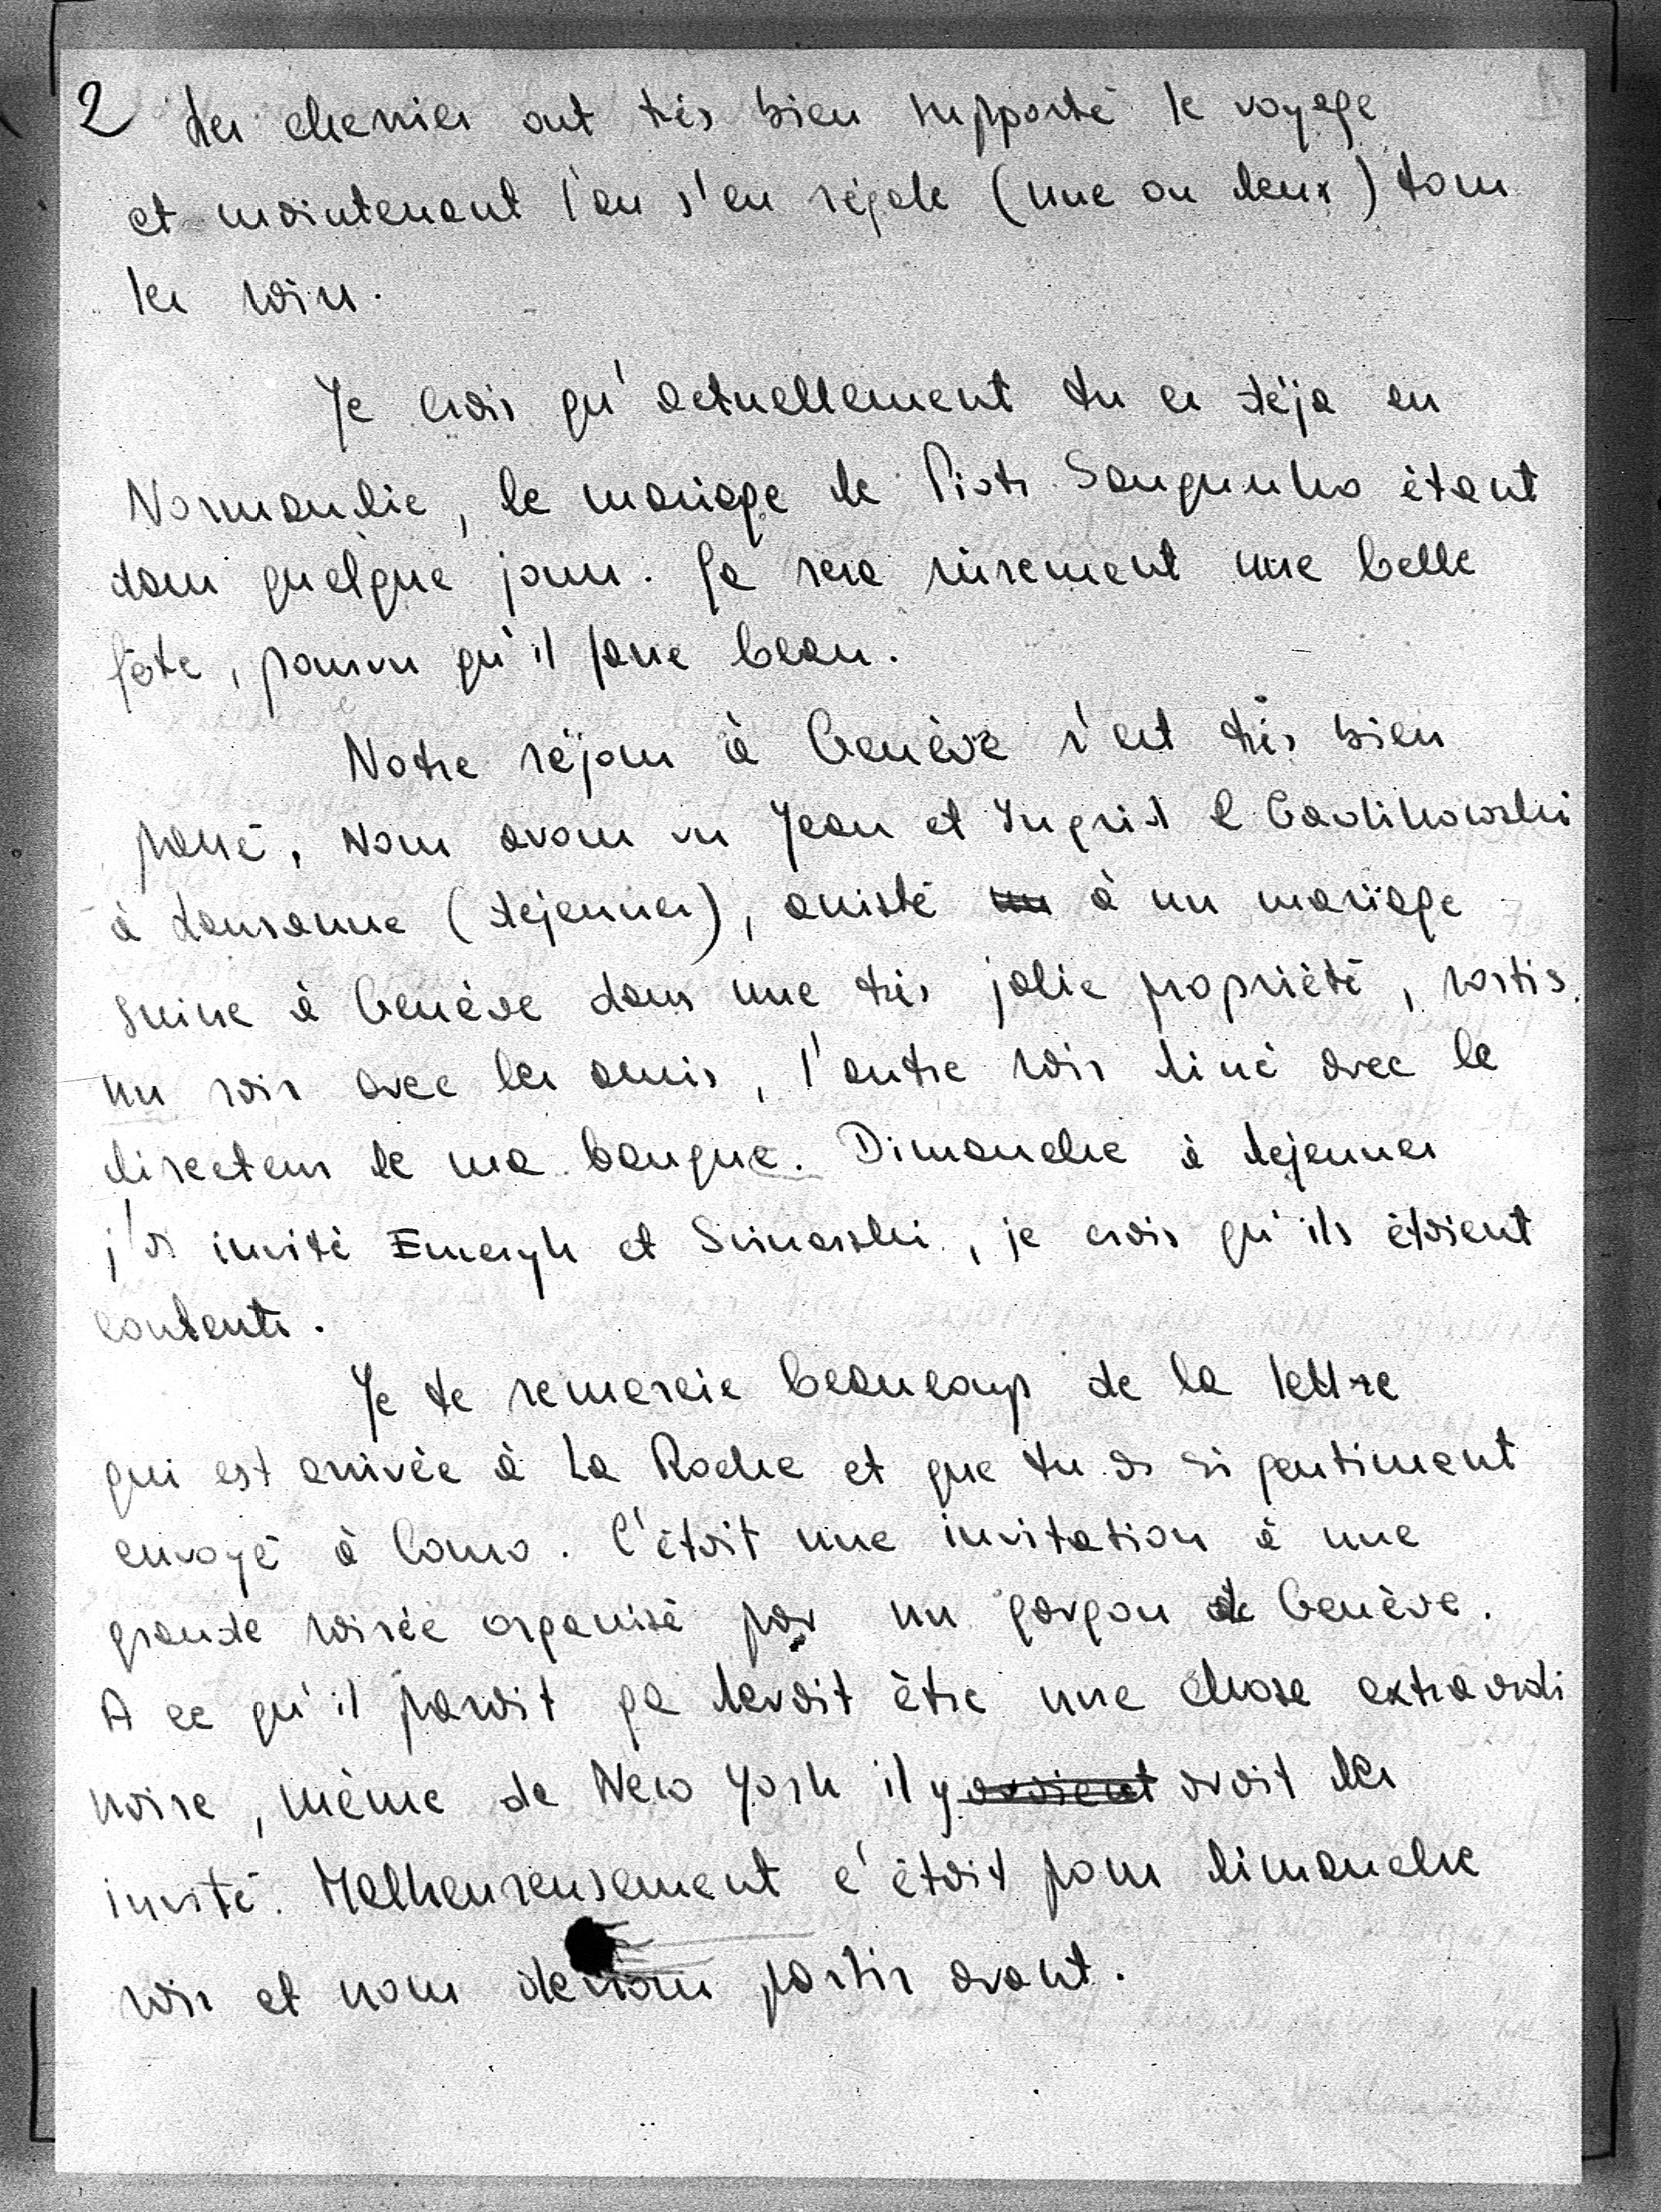 2 Les chemises ont très bien supporté le voyage
et maintenant l'on s'en régale (une ou deux) tous
les soirs.
Je crois qu'actuellement tu es déja en
Normandie, le mariage de Piotr étant
dans quelque jours. Ça sera sûrement une belle
fête, pourvu qu'il fasse beau.
Notre séjour à Genève s'est très bien
passé, nous avons vu Jean et Ingrid
à Lausanne (déjeuner), assisté à un mariage
suisse à Genève dans une très jolie propriété, sortis
un soir avec les amis, l'autre soir diné avec le
directeur de ma banque. Dimanche à dejeuner
j'ai invité Emeryk et , je crois qu'ils étaient
contents.
Je te remercie beaucoup de la lettre
qui est arrivée à La Roche et que tu as si gentiment
envoyé à Como. C'était une invitation à une
grande soirée organisé par un garçon de Genève.
A ce qu'il parait ça devait être une chose extraordi
naire, même de New York il y avaient avait des
invité. Malheureusement c'était pour dimanche
soir et nous devions partir avant.